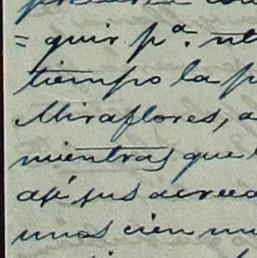 = guir pª.
tiempo la p
Miraflores, a
mientras que l
así sus acreed
unos cien mi